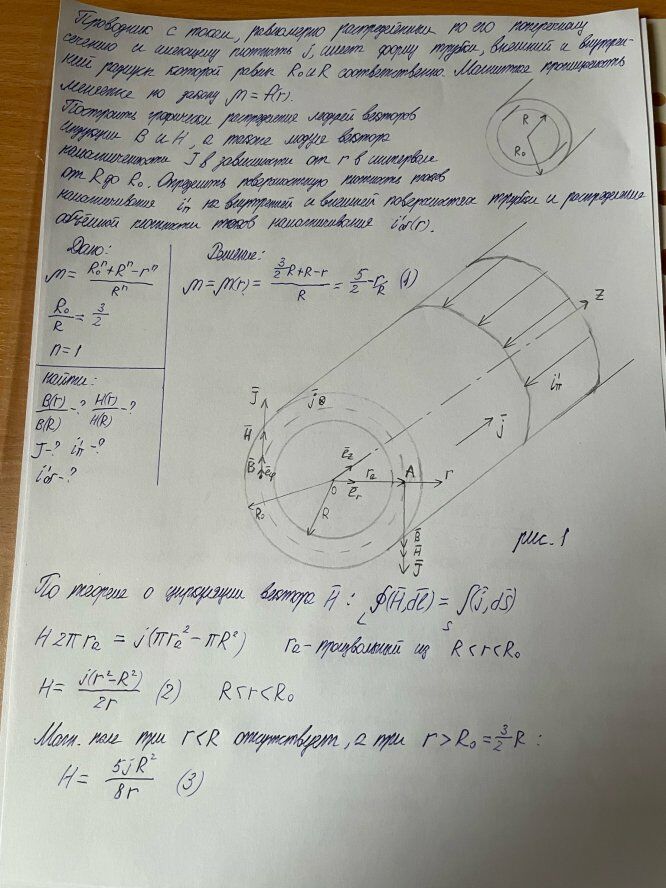 Проводник с током, равномерно распределённым по его поперечному
сечению и имеющему плотность j, имеет форму трубки, внешний и внутрен-
ний радиусы которой равны R₀ и R соответственно. Магнитная проницаемость
меняется по закону μ = f(r).
Построить графически распределение модулей векторов
индукции B и H, а также модуля вектора
намагниченности J в зависимости от r в интервале
от R до R₀. Определить поверхностную плотность токов
намагничивания i'п на внутренней и внешней поверхностях трубки и распределение
объёмной плотности токов намагничивания i'об(r).
R
R₀
Дано:
μ = (R₀ⁿ + Rⁿ - rⁿ) / Rⁿ
R₀/R = 3/2
n = 1
Найти:
B(r)/B(R) - ? H(r)/H(R) - ?
J - ? i'п - ?
i'об - ?
Решение:
μ = μ(r) = (3/2 R + R - r) / R = 5/2 - r/R (1)
z
i'п
j̄
J̄
H̄
B̄
ēφ
j̄⊗
ēz
ēr
0
rₐ
A
r
R₀
R
B̄
H̄
J̄
рис. 1
По теореме о циркуляции вектора H̄: ∮L (H̄, dl̄) = ∫S (j̄, ds̄)
H 2π rₐ = j(πrₐ² - πR²) rₐ - произвольный из R < r < R₀
H = j(r² - R²) / 2r (2) R < r < R₀
Магн. поле при r < R отсутствует, а при r > R₀ = 3/2 R :
H = 5jR² / 8r (3)